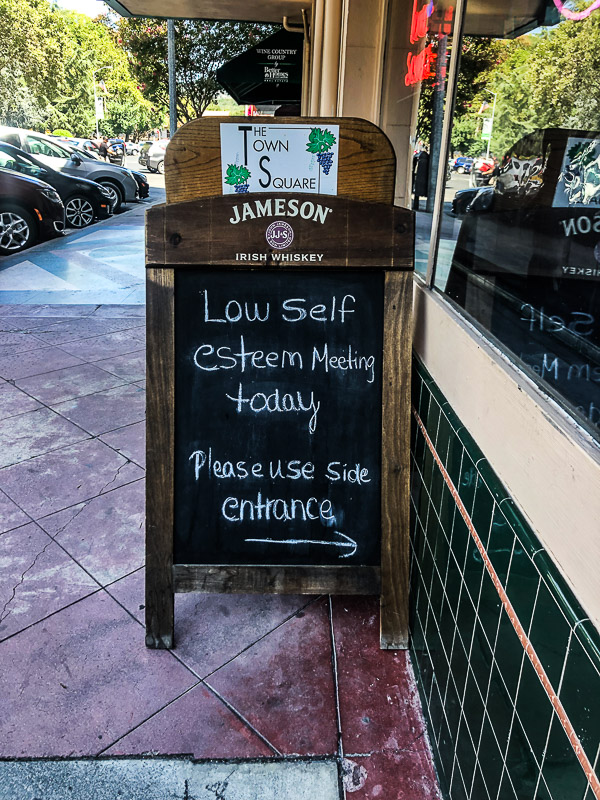 WINE COUNTRY
GROUP
by
Better
Homes
THE
TOWN
SQUARE
JAMESON
JJ&S
IRISH WHISKEY
Low Self
esteem Meeting
today
Please use side
entrance
SON
KEY
Self